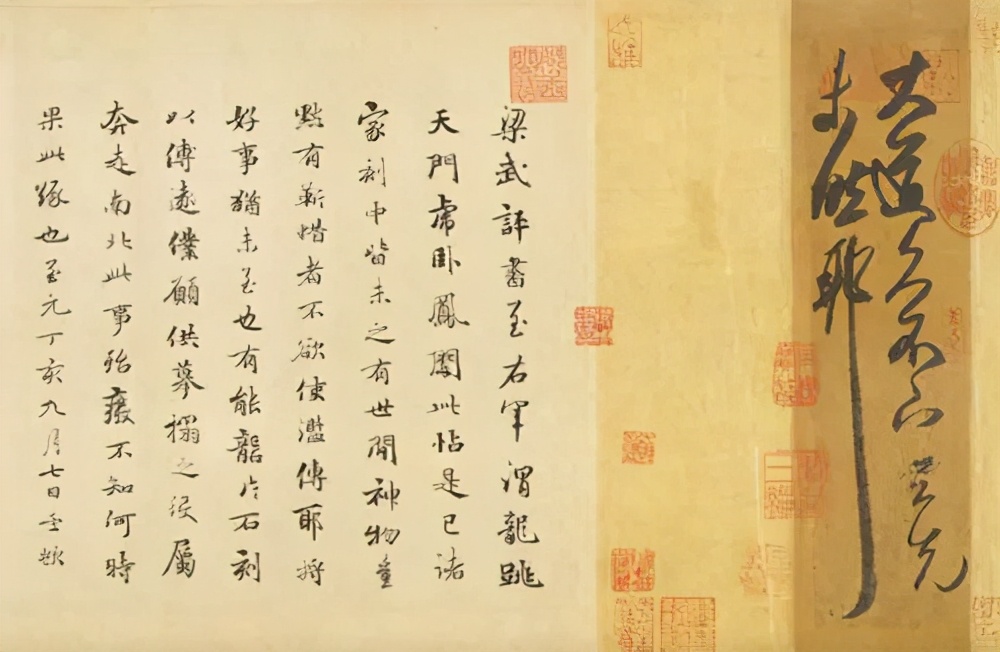 大道久不下与先
未然耶
梁武評書至右軍謂龍跳
天門虎卧鳳閣此帖是已諸
家刻中皆未之有世間神物豈
黠有靳惜者不欲使濫傳耶將
好事猶未至也有能礱片石刻
以傳遠僕願供摹搨之役屬
奔走南北此事殆癈不知何時
果此緣也至元丁亥九月七日